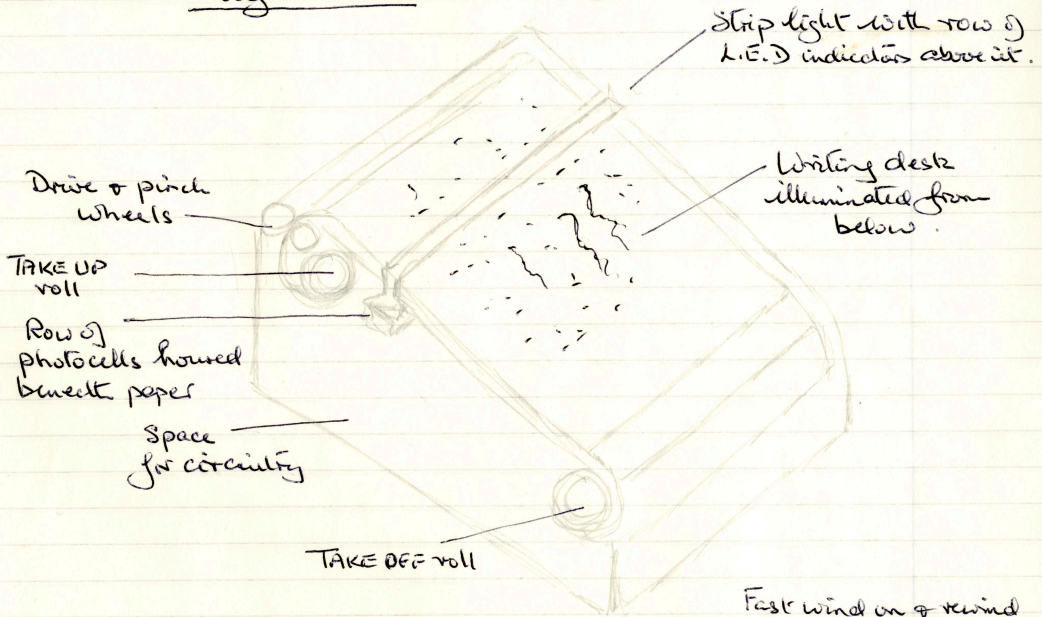 Strip light with row of
L.E.D indicators above it.
Writing desk
illuminated from
below.
Drive & pinch
wheels
TAKE UP
roll
Row of
photocells housed
beneath paper
Space
for circuitry
TAKE OFF roll
Fast wind on & rewind